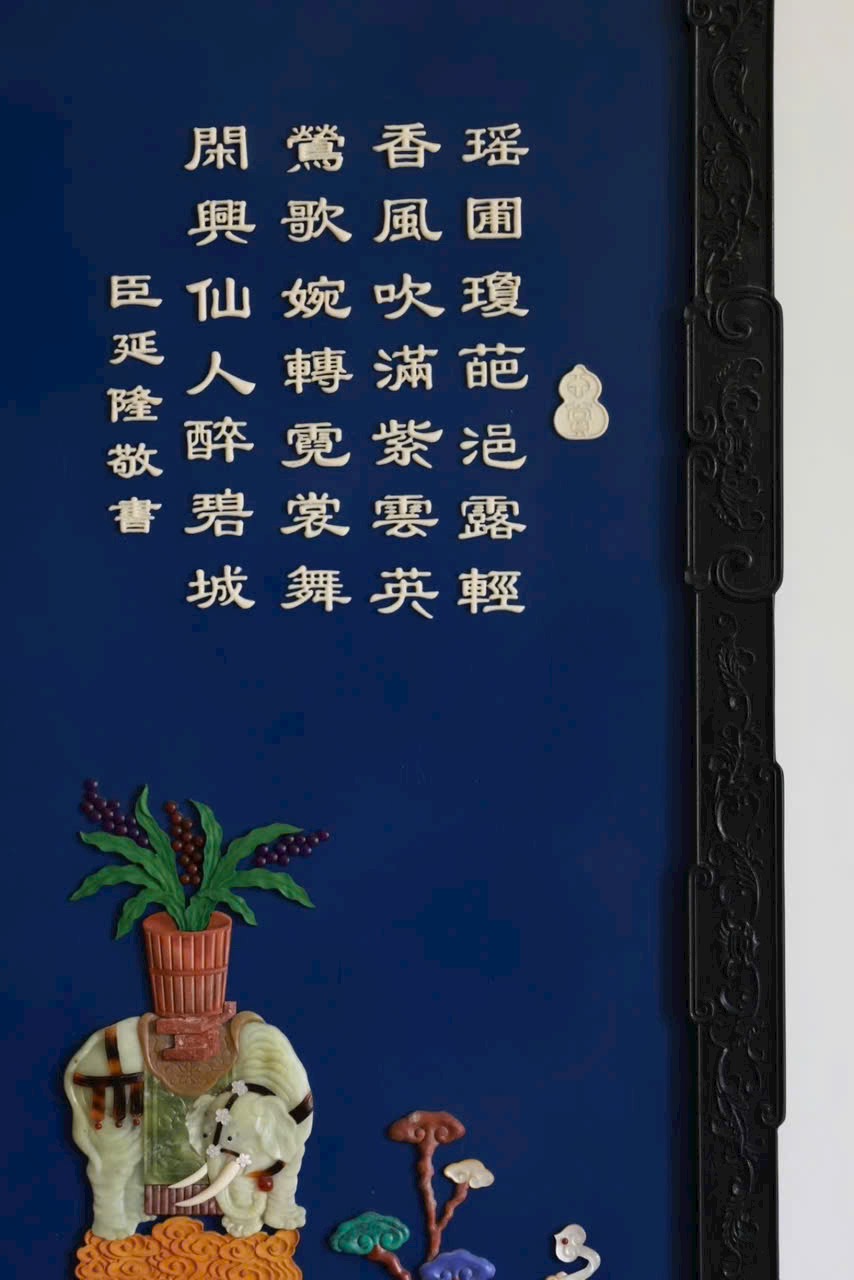 瑤圃瓊葩浥露輕
香風吹滿紫雲英
鶯歌婉轉霓裳舞
閑興仙人醉碧城
臣延隆敬書